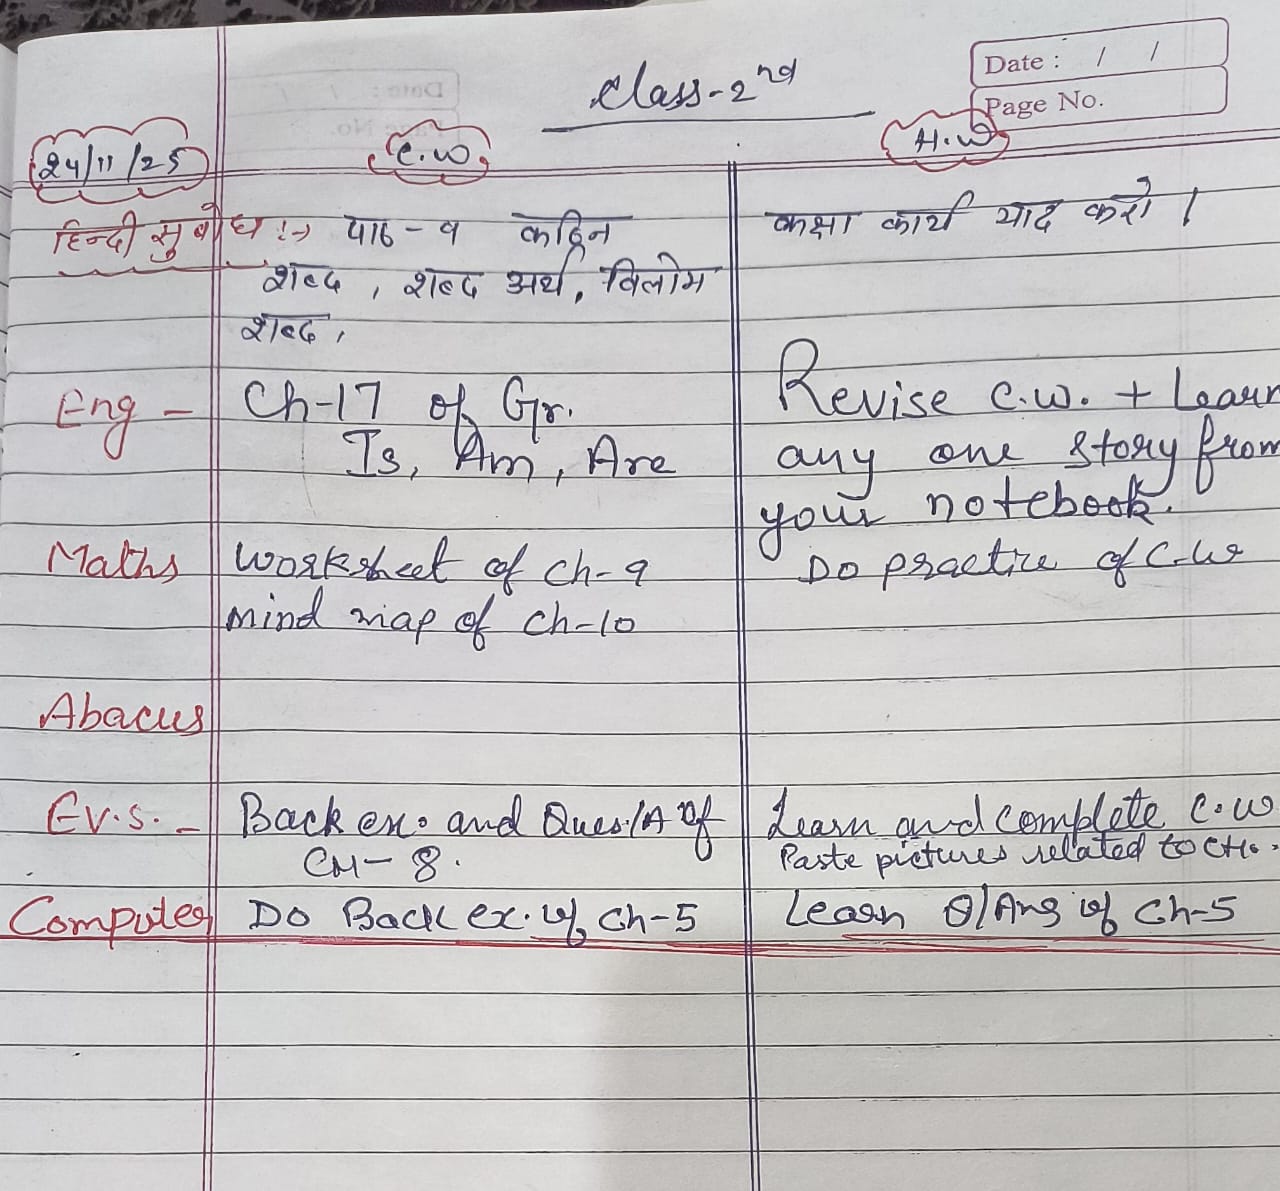 Class-2nd
Date : / /
Page No.
24/11/25
C.W.
H.W
हिन्दी सुबोध :→ पाठ - ९ कठिन
शब्द , शब्द अर्थ, विलोम
शब्द,
कक्षा कार्य याद करो ।
Eng -
Ch-17 of Gr.
Is, Am, Are
Revise C.W. + Learn
any one story from
your notebook.
Maths
Worksheet of Ch-9
Mind map of Ch-10
Do practice of C.W
Abacus
E.v.s. -
Back ex. and Ques/A of
CH- 8.
Learn and complete C.W
Paste pictures related to CH.
Computer
Do Back ex. of Ch-5
Learn Q/Ans of Ch-5